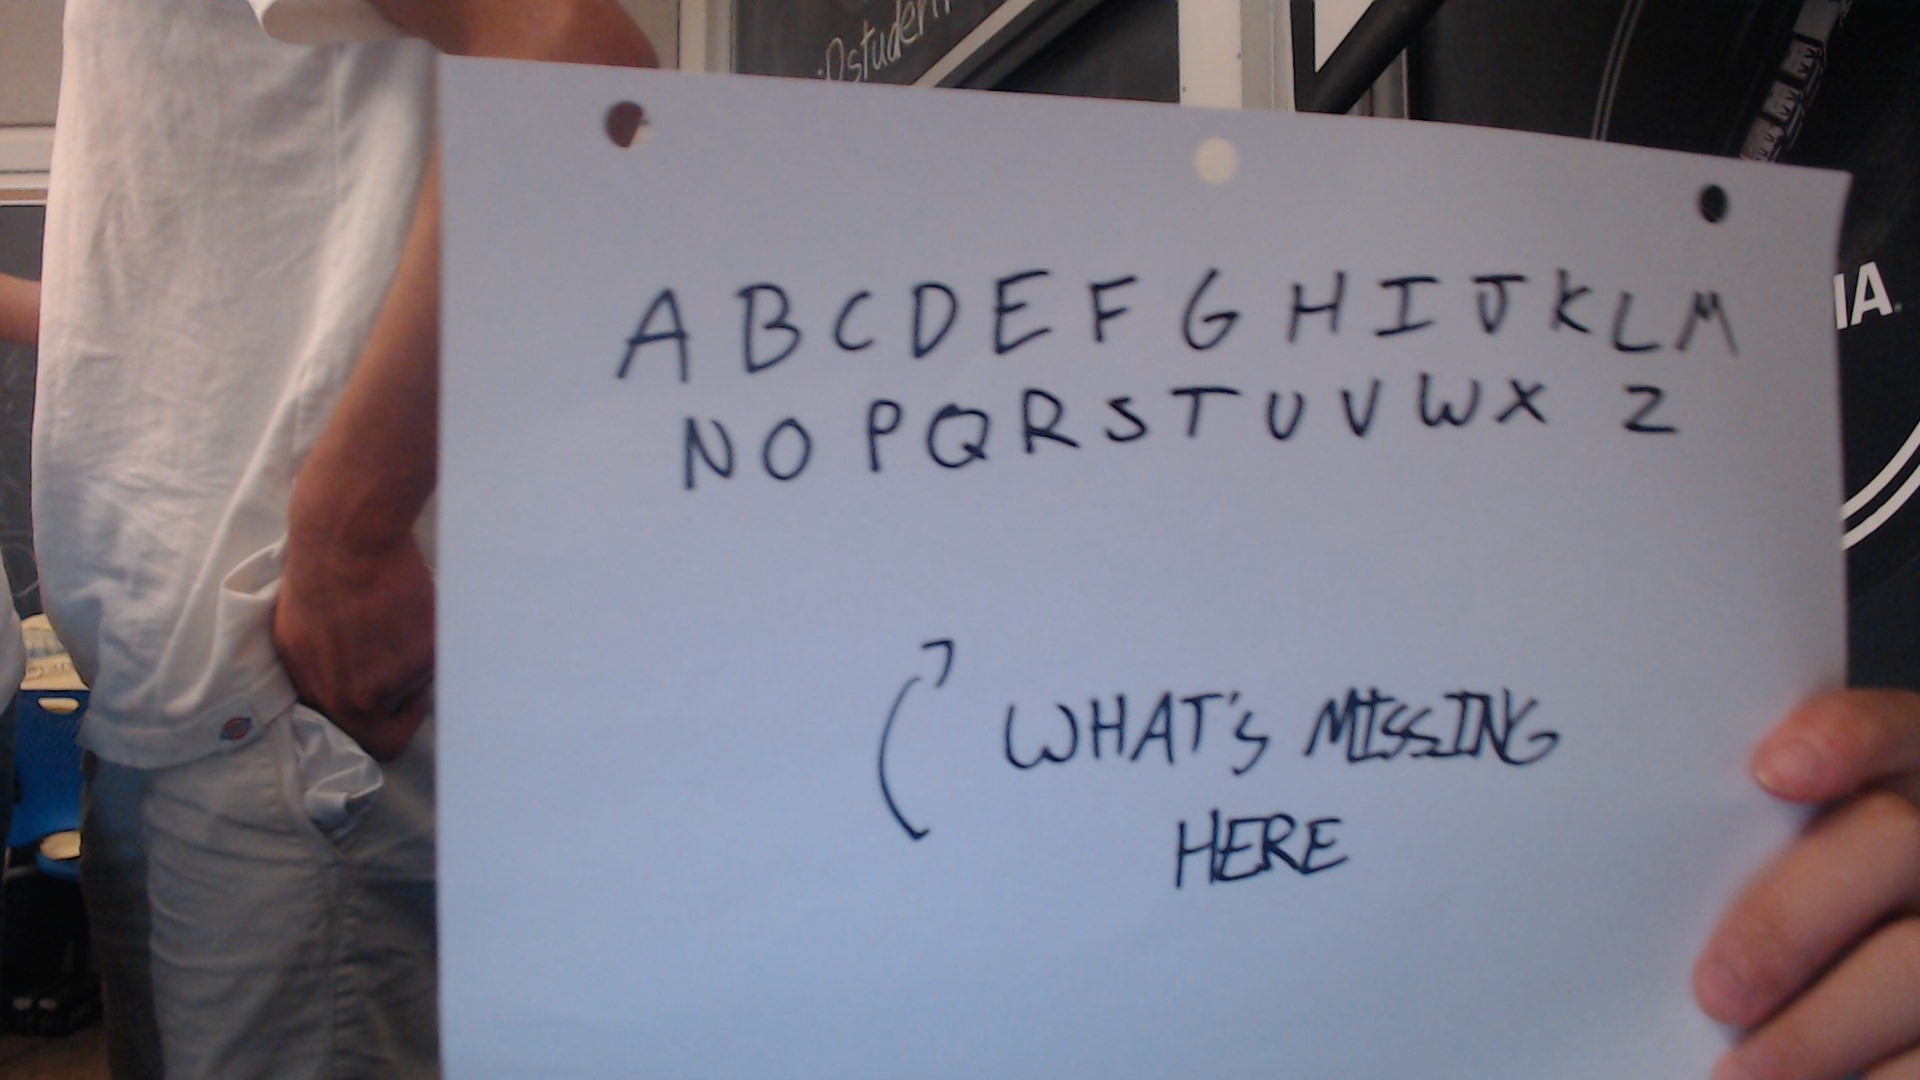 iDstuden
IA.
A B C D E F G H I J K L M
N O P Q R S T U V W X Z
WHAT'S MISSING
HERE